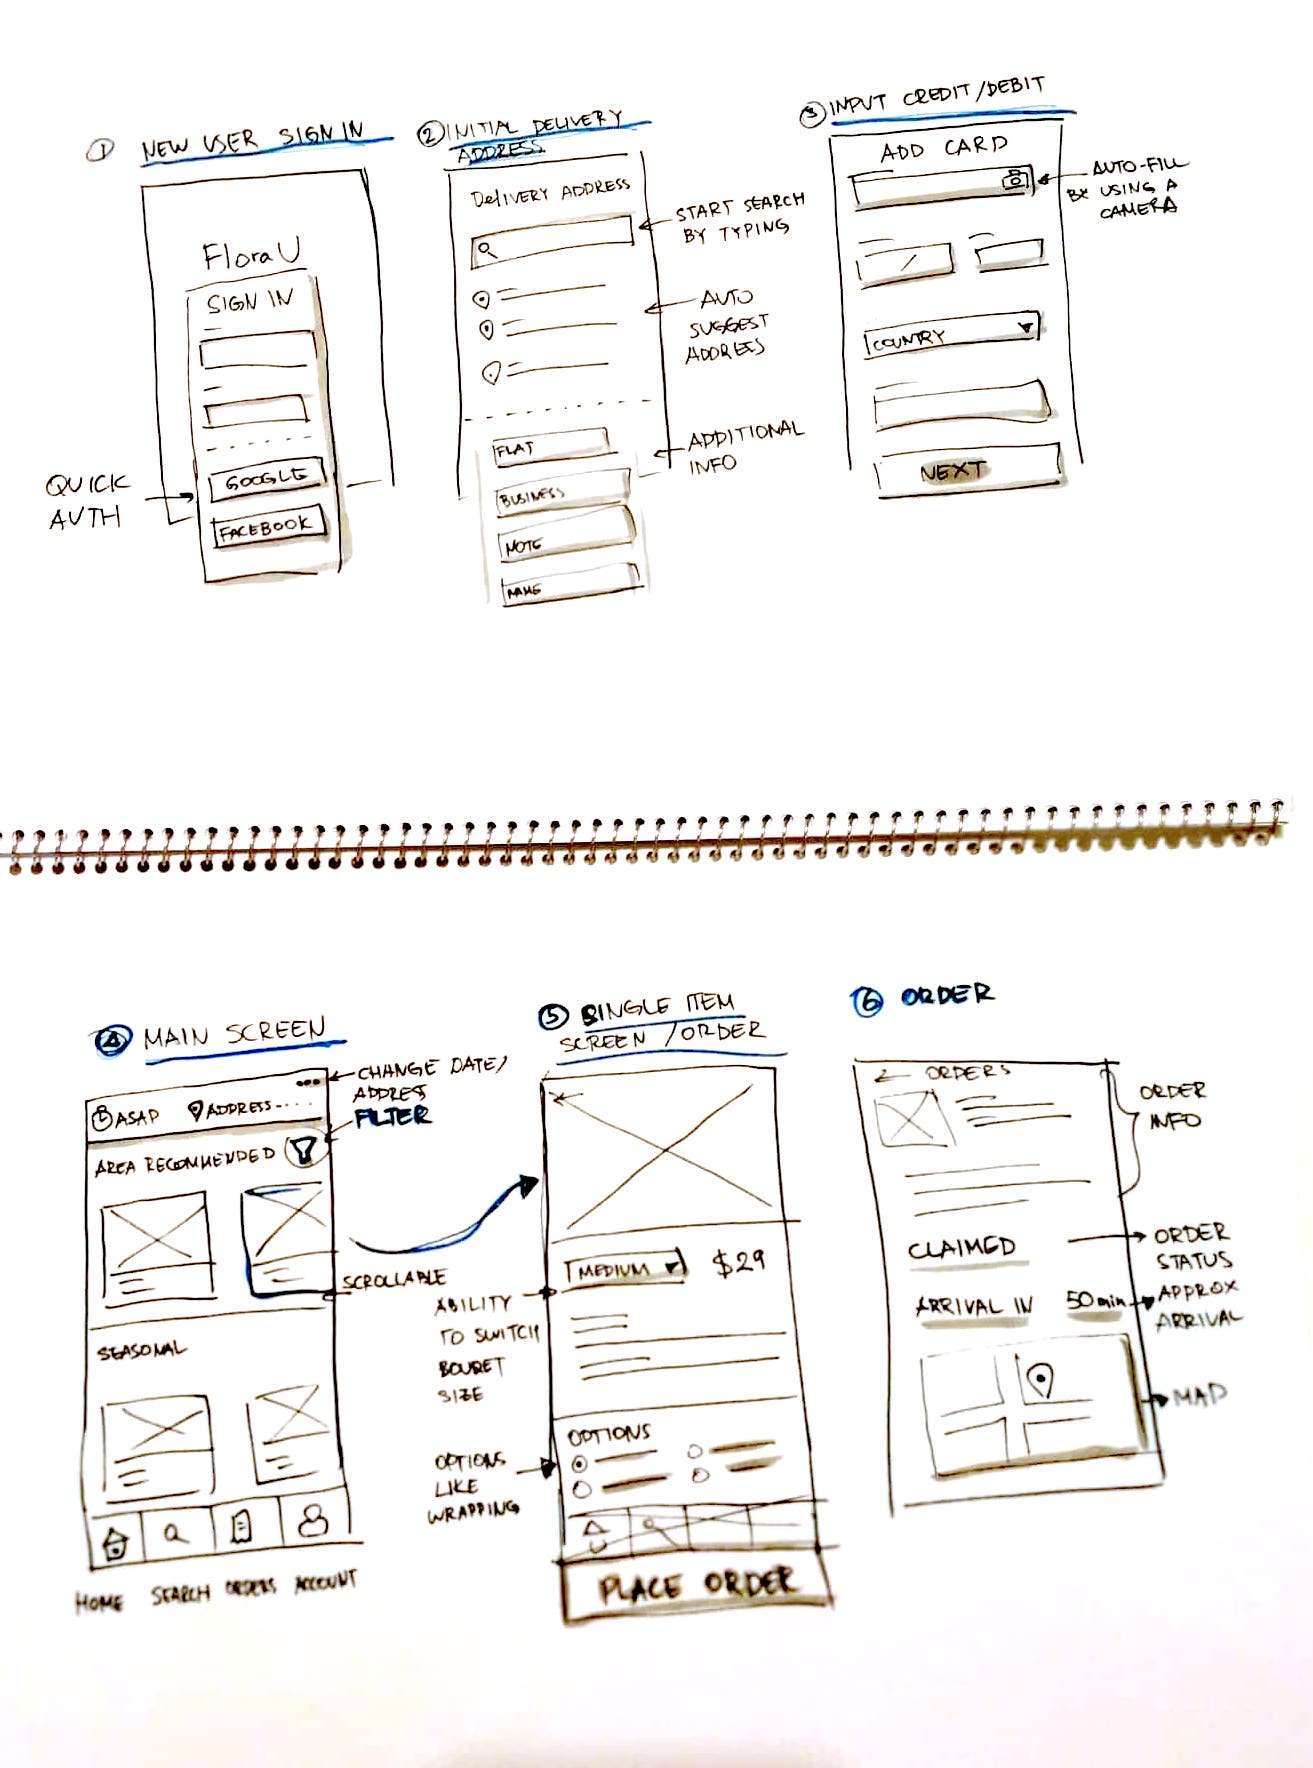 ① NEW USER SIGN IN
Flora U
SIGN IN
GOOGLE
FACEBOOK
QUICK
AUTH
② INITIAL DELIVERY
ADDRESS
DElIVERY ADDRESS
START SEARCH
BY TYPING
AUTO
SUGGEST
ADDRESS
FLAT
BUSINESS
NOTE
NAME
ADDITIONAL
INFO
③ INPUT CREDIT/DEBIT
ADD CARD
AUTO-FILL
BY USING A
CAMERA
COUNTRY
NEXT
④ MAIN SCREEN
CHANGE DATE/
ADDRESS
FILTER
ASAP ADDRESS-....
AREA RECOMMENDED
SCROLLABLE
SEASONAL
HOME SEARCH ORDERS ACCOUNT
⑤ SINGLE ITEM
SCREEN /ORDER
MEDIUM $29
ABILITY
TO SWITCH
BOUQET
SIZE
OPTIONS
OPTIONS
LIKE
WRAPPING
PLACE ORDER
⑥ ORDER
← ORDERS
ORDER
INFO
CLAIMED
ORDER
STATUS
ARRIVAL IN 50 min
APPROX
ARRIVAL
MAP